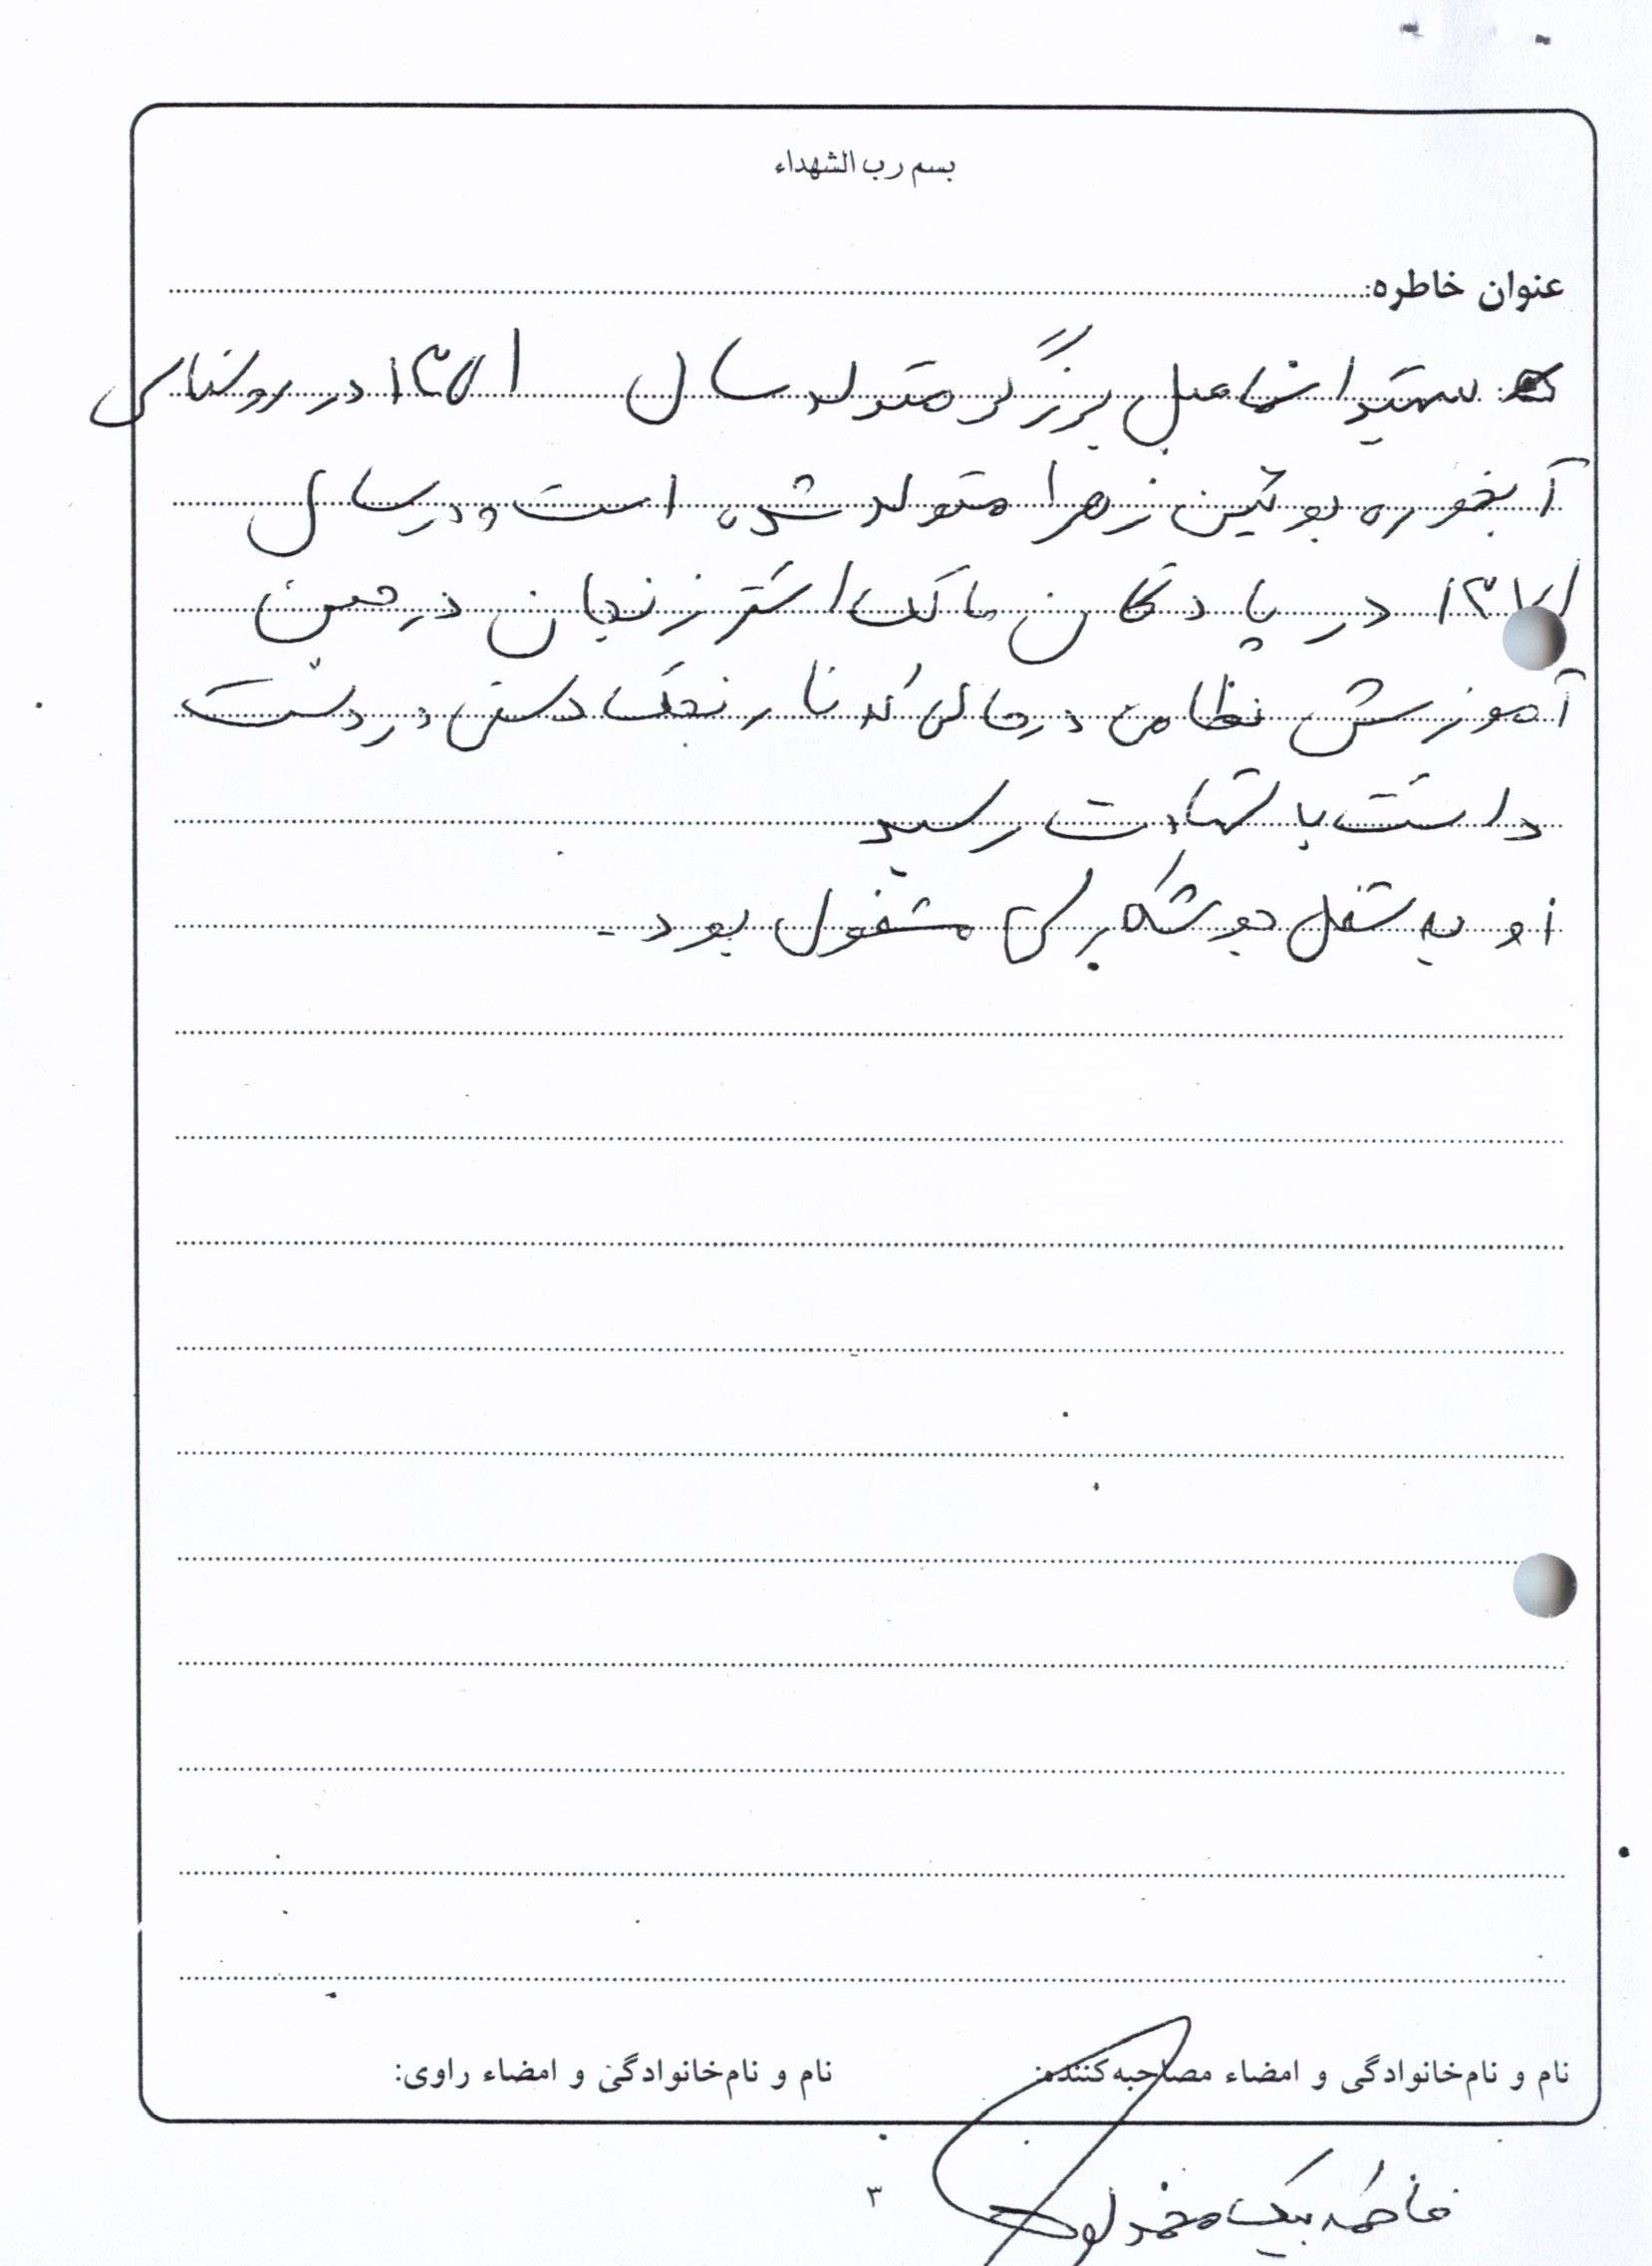 بسم رب الشهداء
عنوان خاطره:
شهید اسماعیل برزگر متولد سال ۱۳۵۱ در روستای
آبخوره بوئین زهرا متولد شده است و در سال
۱۳۷۱ در پادگان مالک اشتر زنجان در حین
آموزش نظامی در حالی که نارنجک دستی در دست
داشت با شهادت رسید
او به شغل جوشکاری مشغول بود.
نام و نام‌خانوادگی و امضاء مصاحبه‌کننده:
نام و نام‌خانوادگی و امضاء راوی:
فاطمه بیگ محمدلو
۳